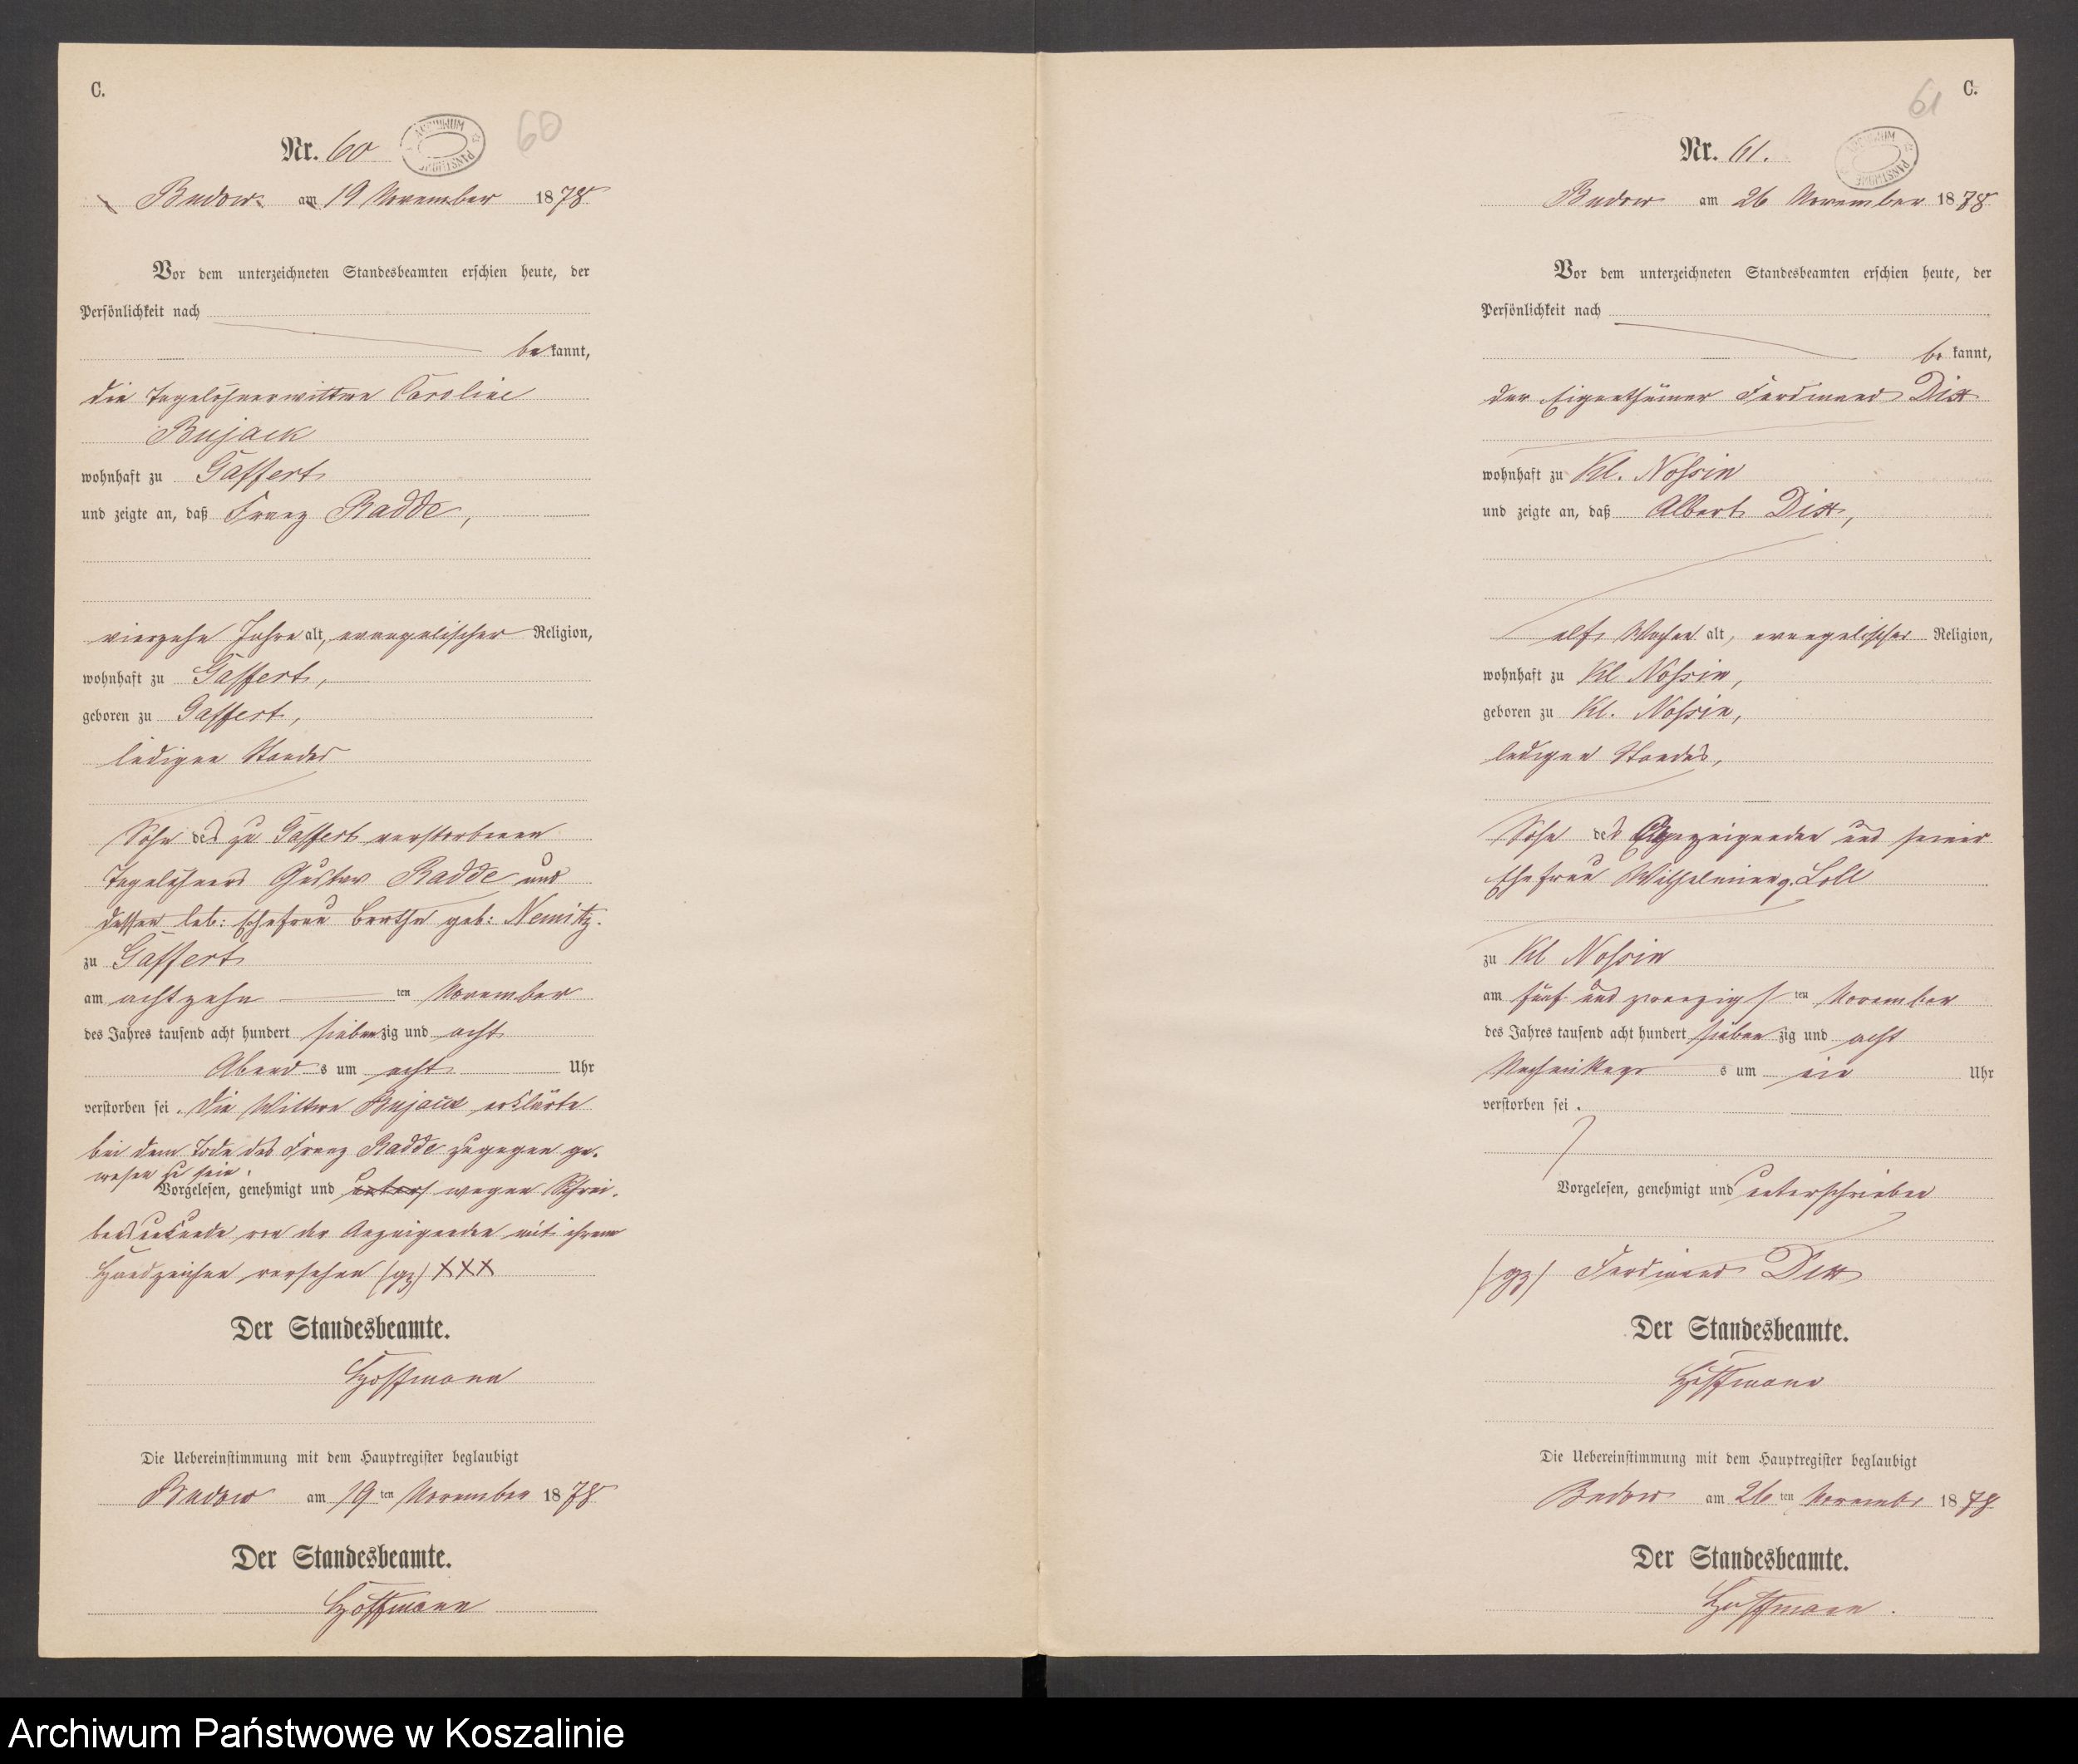 C.
Nr. 60
60
Budow am 19 November 1878
Vor dem unterzeichneten Standesbeamten erschien heute, der
Persönlichkeit nach
bekannt,
die Tagelöhnerwittwe Caroline
Bujack
wohnhaft zu Gaffert
und zeigte an, daß Franz Radde,
vierzehn Jahre alt, evangelischer Religion,
wohnhaft zu Gaffert,
geboren zu Gaffert,
ledigen Standes
Sohn des zu Gaffert verstorbenen
Tagelöhners Gustav Radde und
dessen leb: Ehefrau Bertha geb: Nemitz.
zu Gaffert
am achtzehn ten November
des Jahres tausend acht hundert siebenzig und acht
Abends um acht Uhr
verstorben sei. Die Wittwe Bujack erklärte
bei dem Tode des Franz Radde zugegen ge-
wesen zu sein.
Vorgelesen, genehmigt und unters wegen Schrei-
bensunkunde von der Anzeigenden mit ihrem
Handzeichen versehen (gz) XXX
Der Standesbeamte.
Hoffmann
Die Uebereinstimmung mit dem Hauptregister beglaubigt
Budow am 19ten November 1878
Der Standesbeamte.
Hoffmann
C.
61
Nr. 61.
Budow am 26 November 1878
Vor dem unterzeichneten Standesbeamten erschien heute, der
Persönlichkeit nach
bekannt,
der Eigenthümer Ferdinand
wohnhaft zu Kl. Nossin
und zeigte an, daß Albert
elf Wochen alt, evangelischer Religion,
wohnhaft zu Kl Nossin,
geboren zu Kl. Nossin,
ledigen Standes,
Sohn des Anzeigenden und seiner
Ehefrau Wilhelmine g. Loll
zu Kl Nossin
am fünf und zwanzigsten November
des Jahres tausend acht hundert siebenzig und acht
Nachmittags um ein Uhr
verstorben sei.
Vorgelesen, genehmigt und unterschrieben
(gz) Ferdinand
Der Standesbeamte.
Hoffmann
Die Uebereinstimmung mit dem Hauptregister beglaubigt
Budow am 26ten Novembr 1878
Der Standesbeamte.
Hoffmann.
Archiwum Państwowe w Koszalinie